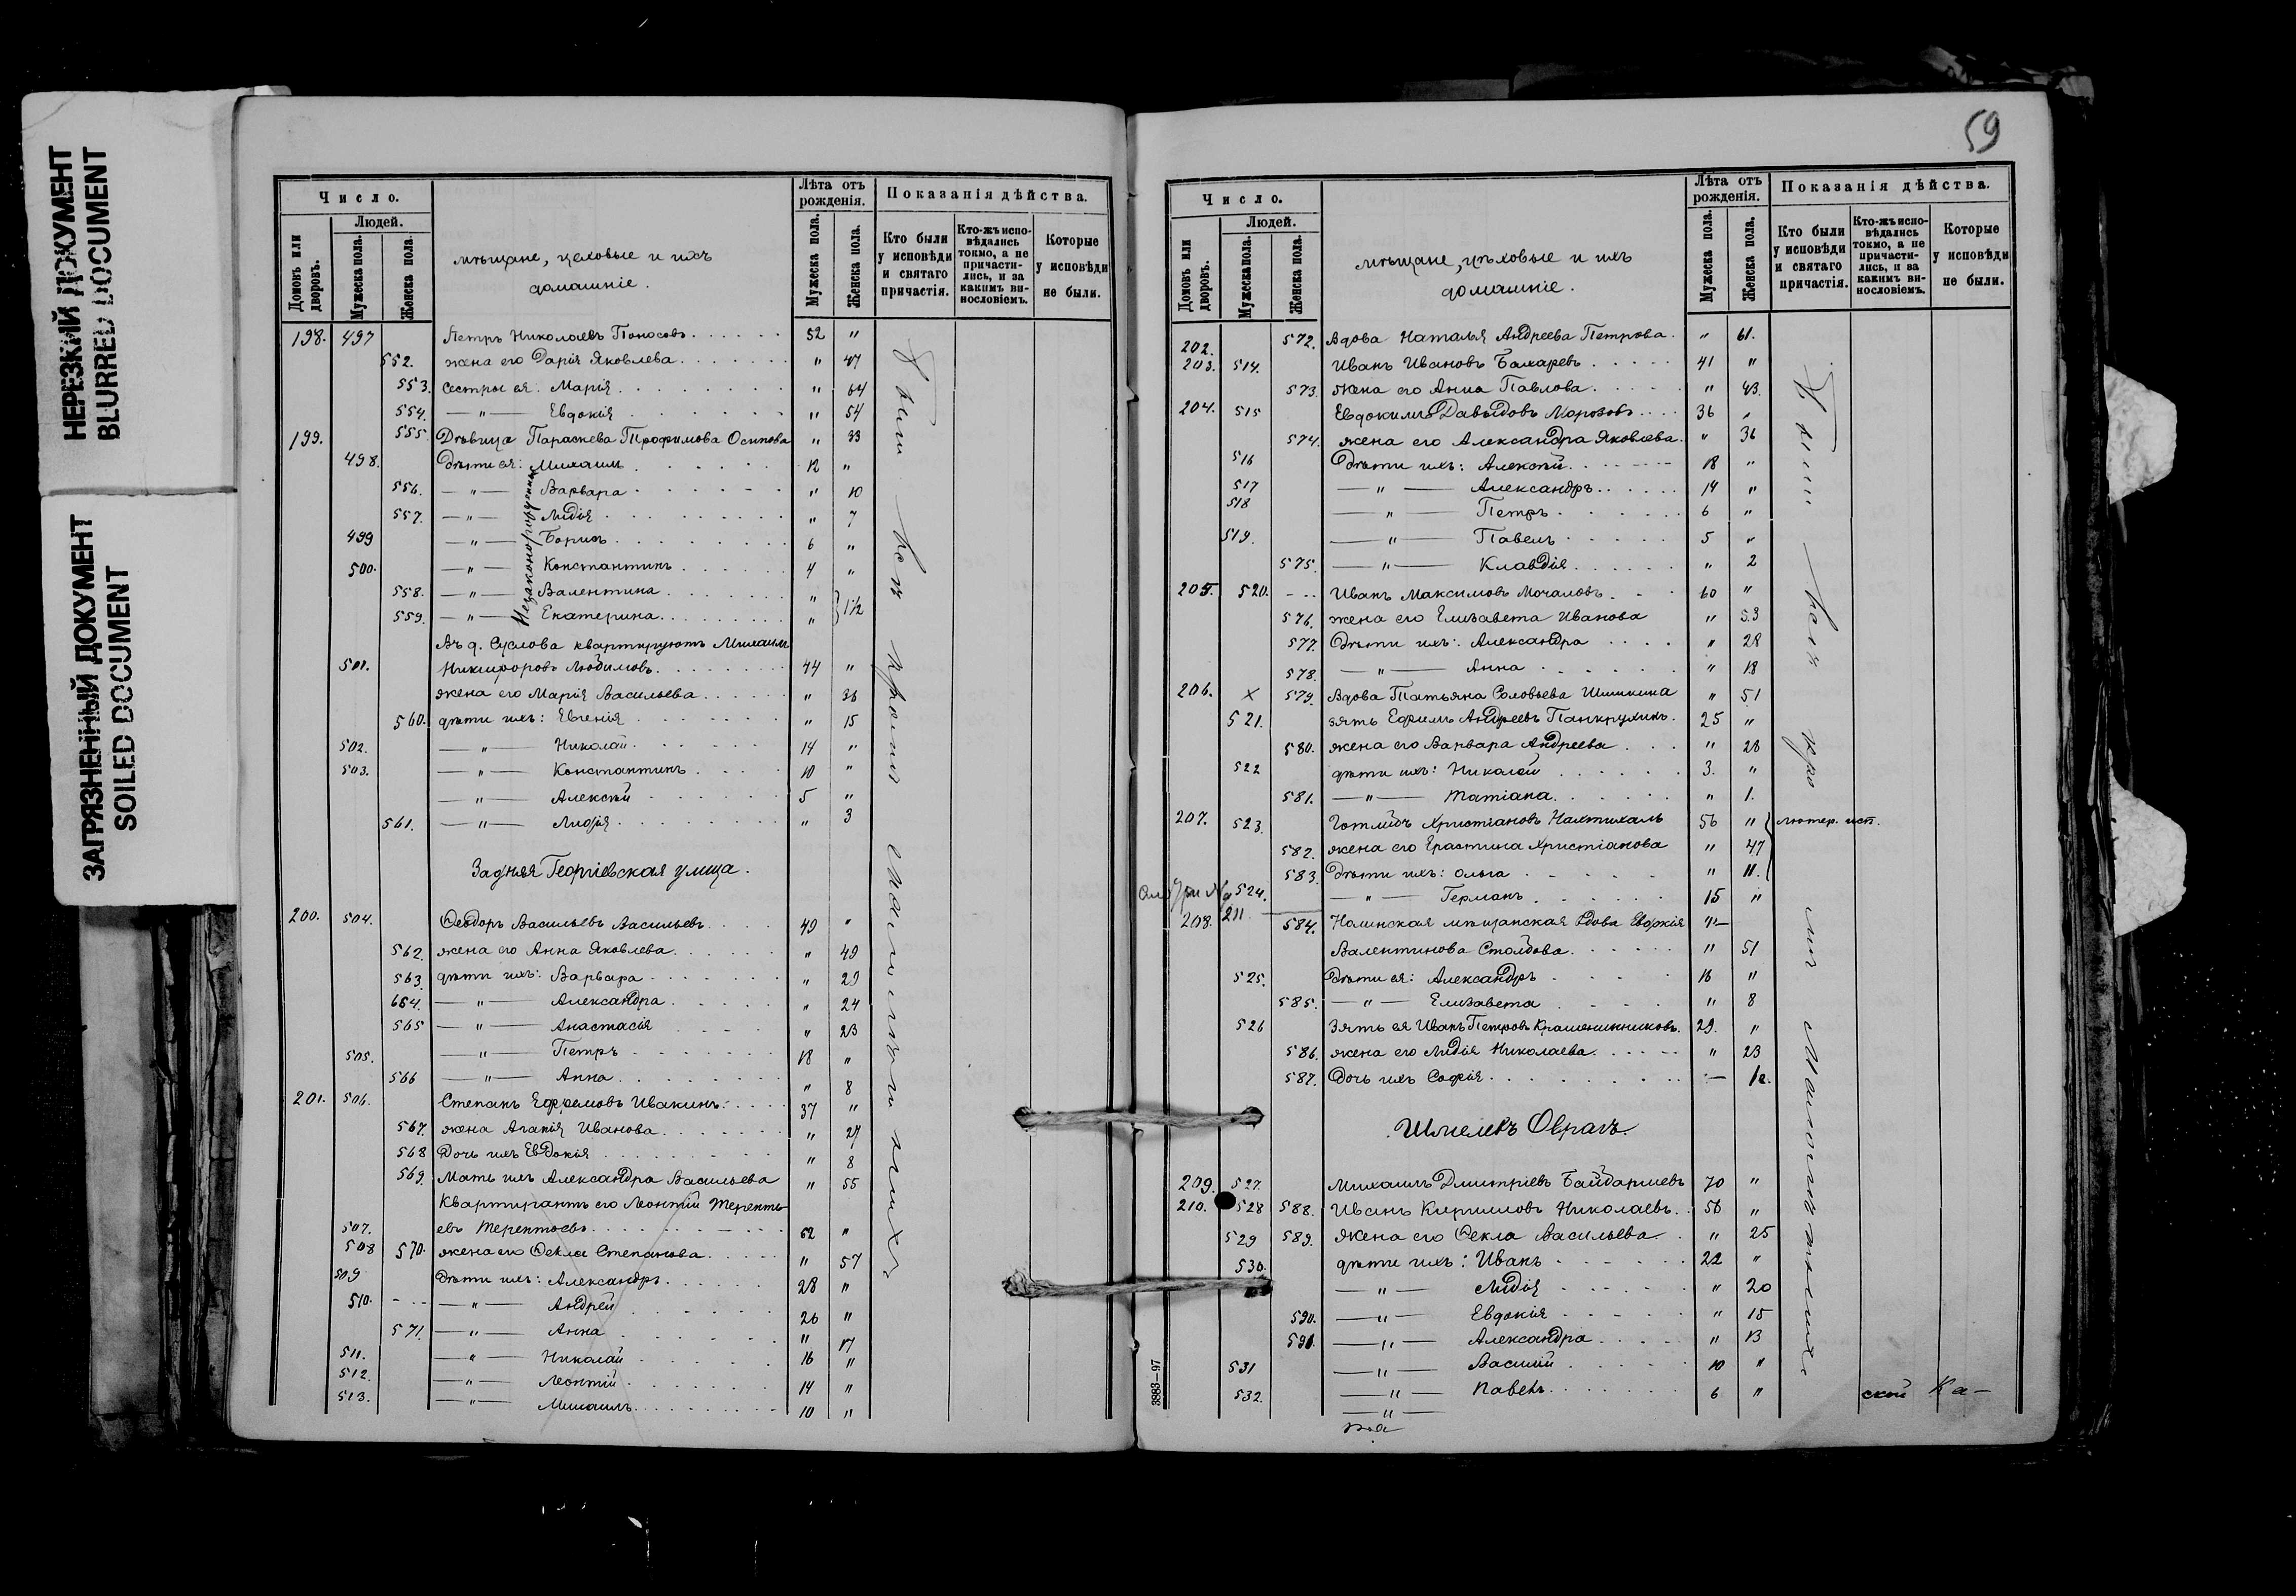 НЕРЕЗКИЙ ДОКУМЕНТ
BLURRED DOCUMENT
ЗАГРЯЗНЕННЫЙ ДОКУМЕНТ
SOILED DOCUMENT
Число.
Людей.
Домовъ или дворовъ.
Мужеска пола.
Женска пола.
мѣщане, цеховые и ихъ
домашніе.
Лѣта отъ рожденія.
Мужеска пола.
Женска пола.
Показанія дѣйства.
Кто были у исповѣди и святаго причастія.
Кто-жъ исповѣдались токмо, а не причастились, и за какимъ винословіемъ.
Которые у исповѣди не были.
198. 497 Петръ Николаевъ Поносовъ 52 "
552. жена его Дарія Яковлева " 47
553. Сестры ея: Марія " 64
554. — " — Евдокія " 54
199. 555 Дѣвица Параскева Трофимова Осипова " 33
498. Дѣти ея: Михаилъ 12 "
556. — " — Варвара " 10
557. — " — Лидія " 7
499 — " — Борисъ 6 "
500. — " — Константинъ 4 "
558. — " — Валентина "
559. — " — Екатерина " 1½
Незаконнорожденные
Въ д. Суслова квартируютъ Михаилъ
501. Никифоровъ Любимовъ 44 "
жена его Марія Васильева " 36
560. дѣти ихъ: Евгенія " 15
502. — " — Николай 14 "
503. — " — Константинъ 10 "
— " — Алексѣй 5 "
561. — " — Лидія " 3
Задняя Георгіевская улица.
200. 504. Ѳеодоръ Васильевъ Васильевъ 49 "
562. жена его Анна Яковлева " 49
563. дѣти ихъ: Варвара " 29
664. — " — Александра " 24
565 — " — Анастасія " 23
505. — " — Петръ 18 "
566 — " — Анна " 8
201. 506. Степанъ Ефремовъ Ивакинъ 37 "
567. жена Агапія Иванова " 27
568 Дочь ихъ Евдокія " 8
569. Мать ихъ Александра Васильева " 55
Квартирантъ его Леонтій Теренть-
507. евъ Терентьевъ 62 "
508 570. жена его Ѳекла Степанова " 57
509 Дѣти ихъ: Александръ 28 "
510. — " — Андрей 26 "
571. — " — Анна " 17
511. — " — Николай 16 "
512. — " — Леонтій 14 "
513. — " — Михаилъ 10 "
59
Число.
Людей.
Домовъ или дворовъ.
Мужеска пола.
Женска пола.
мѣщане, цѣховые и ихъ
домашніе.
Лѣта отъ рожденія.
Мужеска пола.
Женска пола.
Показанія дѣйства.
Кто были у исповѣди и святаго причастія.
Кто-жъ исповѣдались токмо, а не причастились, и за какимъ винословіемъ.
Которые у исповѣди не были.
202. 572. Вдова Наталья Андреева Петрова " 61.
203. 514. Иванъ Ивановъ 41 "
573. Жена его Анна Павлова " 43.
204. 515 Евдокимъ Давыдовъ Морозовъ 36 "
574. жена его Александра Яковлева " 36
516 Дѣти ихъ: Алексѣй 18 "
517 — " — Александръ 14 "
518 — " — Петръ 6 "
519. — " — Павелъ 5 "
575. — " — Клавдія " 2
205. 520. Иванъ Максимовъ Мочаловъ 60 "
576. жена его Елизавета Иванова " 53
577. Дѣти ихъ: Александра " 28
578. — " — Анна " 18
206. × 579. Вдова Татьяна Соловьева Шишкина " 51
521. зять Ефимъ Андреевъ Панкрухинъ 25 "
580. жена его Варвара Андреева " 28
522 дѣти ихъ: Николай 3. "
581. — " — Татіана " 1.
207. 523. Готлибъ Христіановъ Нахтигаль 56 " лютер. исп.
582. жена его Ерастина Христіанова " 47
583. Дѣти ихъ: Ольга " 11.
524. — " — Германъ 15 "
208. 211 584. Нолинская мѣщанская вдова Евдокія
Валентинова Столбова " 51
525. Дѣти ея: Александръ 16 "
585. — " — Елизавета " 8
526 Зять ея Иванъ Петровъ Крашенинниковъ 29. "
586. жена его Лидія Николаева " 23
587. Дочь ихъ Софія
Шмелекъ Оврагъ.
209. 527. Михаилъ Дмитріевъ 70 "
210. 528 588. Иванъ Кирилловъ Николаевъ 56 "
529 589. Жена его Ѳекла Васильева " 25
530. дѣти ихъ: Иванъ 22 "
— " — Лидія " 20
590. — " — Евдокія " 15
591. — " — Александра " 13
531 — " — Василій 10 "
532. — " — Павелъ 6 "
— " —
ской Ка-
3883—97